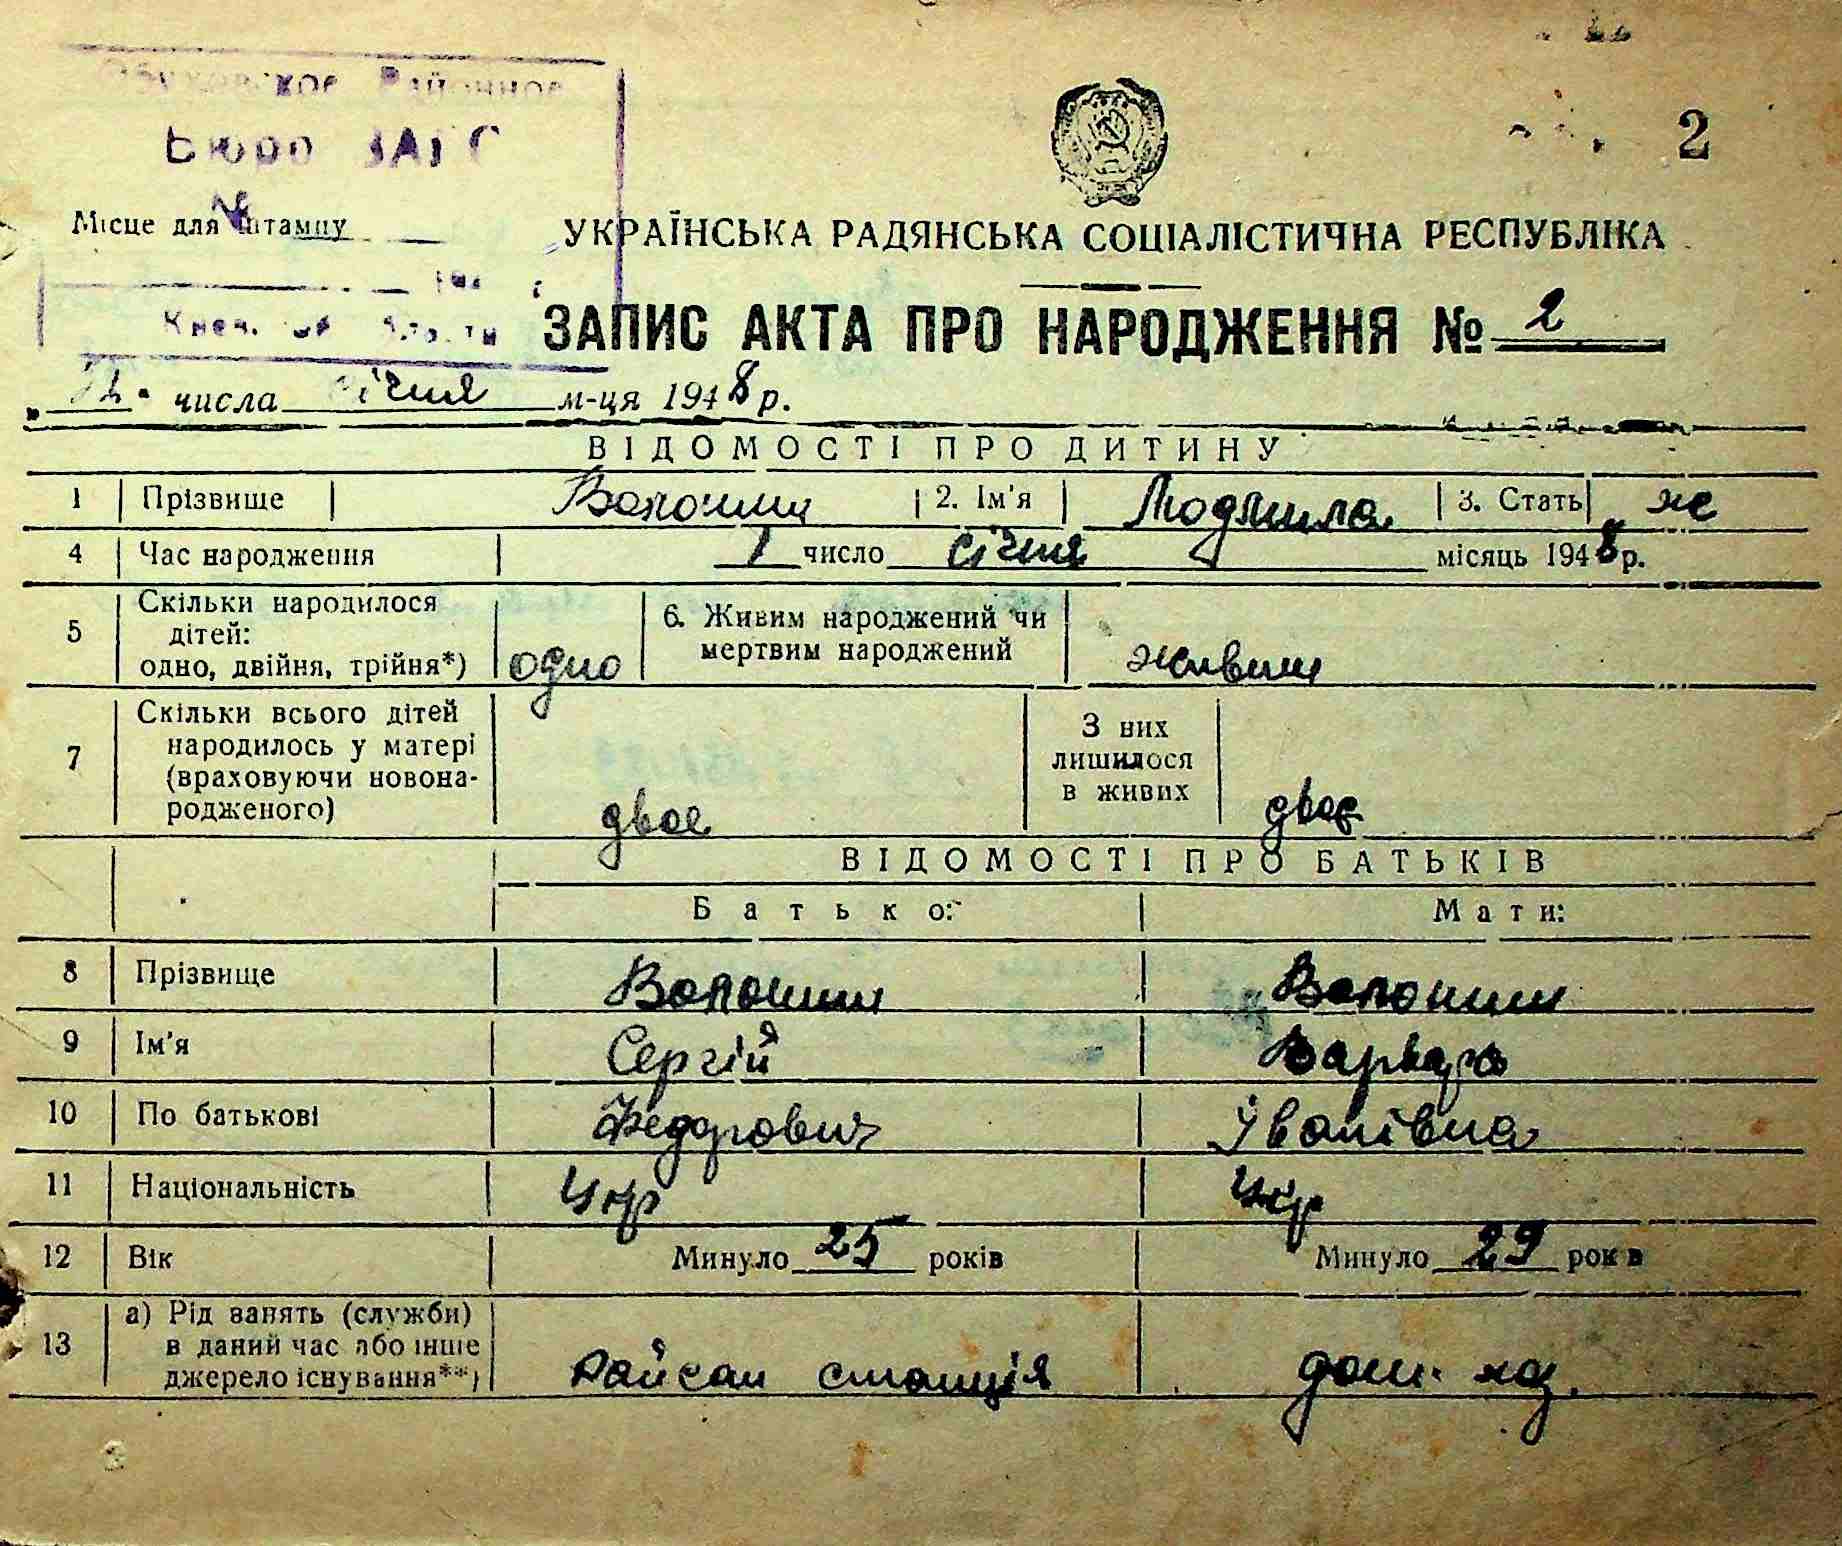 Районное
Бюро ЗАГС
2
Місце для штампу
УКРАЇНСЬКА РАДЯНСЬКА СОЦІАЛІСТИЧНА РЕСПУБЛІКА
ЗАПИС АКТА ПРО НАРОДЖЕННЯ № 2
числа січня м-ця 1948 р.
ВІДОМОСТІ ПРО ДИТИНУ
1 Прізвище Волошин 2. Ім'я Людмила 3. Стать ж
4 Час народження 1 число січня місяць 1948 р.
5 Скільки народилося дітей: одно, двійня, трійня*) одно 6. Живим народжений чи мертвим народжений живим
7 Скільки всього дітей народилось у матері (враховуючи новонародженого) двоє З них лишилося в живих двоє
ВІДОМОСТІ ПРО БАТЬКІВ
Батько: Мати:
8 Прізвище Волошин Волошин
9 Ім'я Сергій Варвара
10 По батькові Федорович Іванівна
11 Національність Укр Укр
12 Вік Минуло 25 років Минуло 29 років
13 а) Рід занять (служби) в даний час або інше джерело існування**) Райсан станція дом.